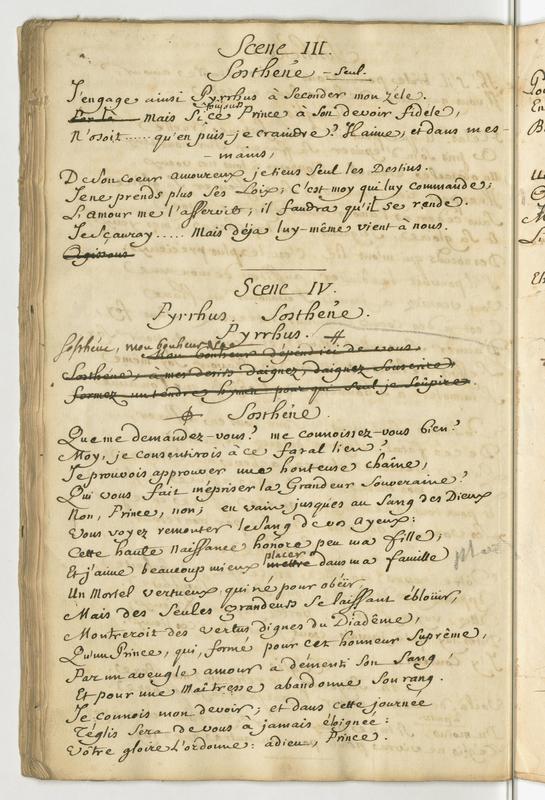 Scene III.
Sosthéne – Seul.
J'engage ainsi Pyrrhus à Seconder mon zèle.
Par là mais Si toujours ce Prince à Son devoir fidele,
N'osoit ..... qu'en puis-je craindre? Haime, et dans mes-
-mains,
De Son Coeur amoureux je tiens Seul les Destins.
Je ne prends plus Ses Loix; C'est moy qui luy commande;
L'amour me l'asservit; il faudra qu'il Se rende.
Je Sçauray ..... Mais déja luy-même vient à nous.
Agissons
Scene IV.
Pyrrhus. Sosthéne.
Pyrrhus. #
Sosthéne, mon bonheur
Mon bonheur dépend ici de vous
Sosthéne, à mes desirs daignez, daignez Souscrire,
formez un tendre hymen pour qui Seul je Soûpire.
Sosthéne.
Que me demandez-vous? me connoissez-vous bien?
Moy, je consentirois à ce fatal lien?
Je pouvois approuver une honteuse chaîne,
Qui vous fait mépriser la Grandeur Souveraine?
Non, Prince, non; en vain jusques au Sang des Dieux
Vous voyez remonter le Sang de vos ayeux:
Cette haute Naissance honore peu ma fille;
Et j'aime beaucoup mieux mettre placer dans ma famille
Un Mortel vertueux, qui né pour obéir,
Mais des Seules grandeurs Se laissant éblouïr,
Montreroit des vertus dignes du Diadême,
Qu'un Prince, qui, formé pour cet honneur Suprême,
Par un aveugle amour a démenti Son Sang,
Et pour une Maîtresse abandonne Son rang.
Je connois mon devoir; et dans cette journée
Téglis Sera de vous à jamais éloignée:
Vôtre gloire l'ordonne: adieu, Prince.